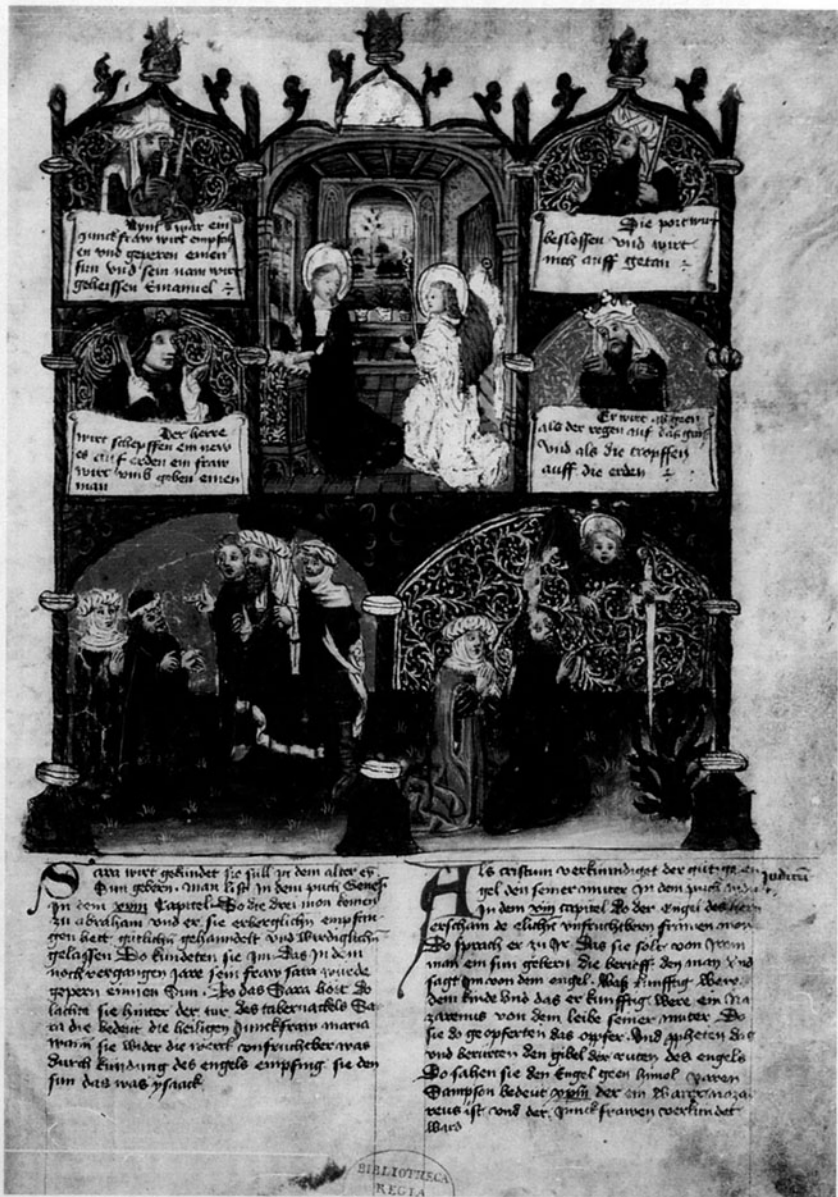 Nym war ein
Junckfraw wirt empfah
en vnd geperen einen
sun vnd sein nam wirt
geheissen Emanuel
Die port wirt
beslossen vnd wirt
nich auff getan
Der herre
wirt schepffen ein new
es auf erden ein fraw
wirt vmb geben einen
man
Er wirt ab geen
als der regen auf das gras
vnd als die tropffen
auff die erden
Sara wirt gekundet sie sull in dem alter ey
Sun gebern. man list In dem puch Genes
In dem xviij Capitel. Do die drei man komen
zu abraham vnd er sie erberglichn empfin
gen hett gutlichn gehanndelt vnd wirdiglichn
gelassen Do kundeten sie Im. Das In dem
noch vergangen Jare sein fraw sara wurde
gepern einnen Sun. Do das Sara hort Do
lachte sie hinter der tur des tabernackels Sa
ra die bedeut die heiligen Junckfraw maria
wann sie wider die werck vnfruchtber was
durch kundung des engels empfing sie den
sun das was ysaack
Als cristum verkundiget der gutige en
gel den seiner muter In dem puch
Judicum
In dem xiij capitel Do der Engel des hern
erscham de elichn vnfruchtbern frawen
Do sprach er zu Ir. Das sie solt von Irem
man ein sun gebern die berieff den man vnd
sagt Im von dem engel. Waß kunfftig wer
dem kinde Vnd das er kunfftig were ein Na
zarenus von dem leibe seiner muter Do
sie do geopferten das opffer. Vnd
vnd berurten den gibel der ruten des engels
Do sahen sie den Engel geen himel varen
Sampson bedeut xpm der ein Warer nazar
reus ist vnd der Junckfrawen verkundet
ward
BIBLIOTHECA
REGIA